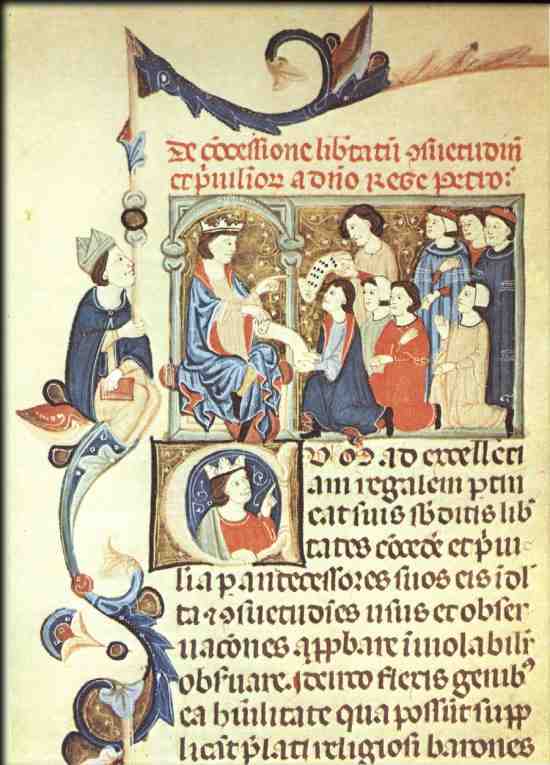 De cōcessione lib̄tatū ꝯsuetudin̄
et p̄uilioꝝ a dn̄o Rege petro:
QUOD ad excellēti
am regalem ꝑtin
eat suis sb̄ditis lib̄
tates cōcedē et p̄ui
lia ꝑ antecessores suos eis īdl
ta ⁊ ꝯsuetudīes usus et obser
uacōnes aꝓbare īuiolabilr̄
obs̄uare. Idcirco flexis genibꝰ
ea hūilitate qua possūt supp
licāt p̄lati religiosi barones